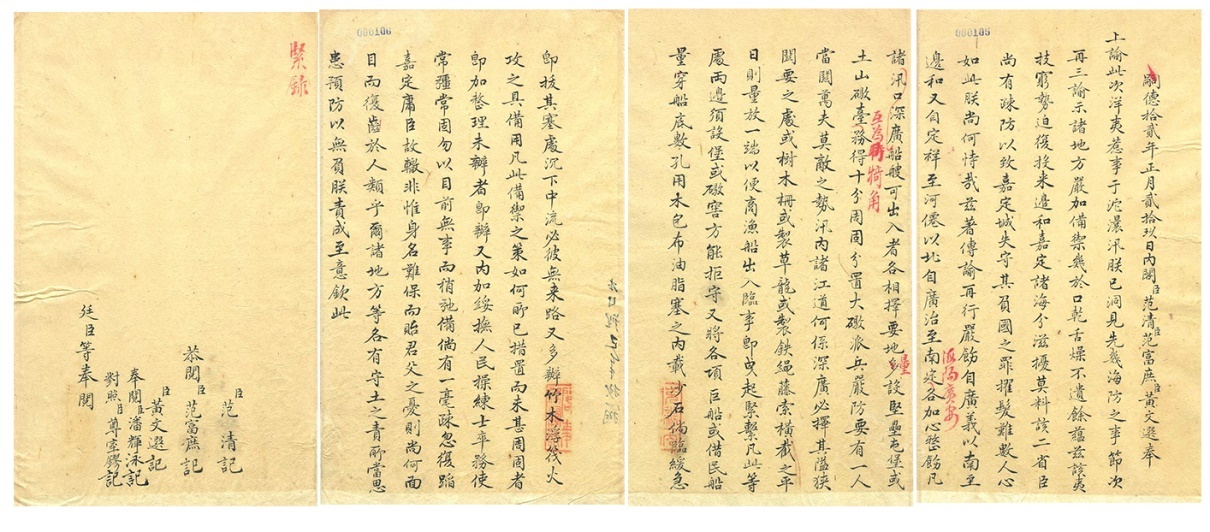 000105
嗣德拾貳年正月貳拾玖日內閣臣范清范富庶臣黃文選奉
上諭此次洋夷惹事于沱㶞汛朕已洞見先幾海防之事節次
再三諭示諸地方嚴加備禦幾於口乾舌燥不遺餘蘊茲該夷
技窮勢迫復投來邊和嘉定諸海分滋擾莫料該二省臣
尚有疎防以致嘉定城失守其負國之罪擢髮難數人心
如此朕尚何恃哉茲著傳諭再行嚴飭自廣義以南至
邊和又自定祥至河僊以北自廣治至南定各加心整飭凡
海陽廣安
諸汛口深廣船艘可出入者各相擇要地多設堅壘屯堡或
量
土山礮臺務得十分周固分置大礮派兵嚴防要有一人
互為犄角
當關萬夫莫敵之勢汛內諸江道何係深廣必擇其溢狹
関要之處或樹木柵或製草龍或製鉄繩藤索橫截之平
日則量放一端以便商漁船出入臨事即曳起緊繫凡此等
處兩邊須設堡或礮窖方能拒守又將各項巨船或借民船
量穿船底數孔用木包布油脂塞之內載沙石倘臨緩急
000106
即拔其塞處沉下中流必彼無来路又多辦竹木浮筏火
攻之具備用凡此備禦之策如何所已措置而未甚周固者
即加整理未辦者即辦又內加綏撫人民操練士卒務使
常彊常固勿以目前無事而稍弛備倘有一毫疎忽復蹈
嘉定庸臣故轍非惟身名難保而貽君父之憂則尚何面
目而復齒於人類乎爾諸地方等各有守土之責所當思
患預防以無負朕責成至意欽此
緊錄
臣范清記
恭閱臣范富庶記
臣黃文選記
奉閱臣潘輝泳記
對照臣尊室鏐記
廷臣等奉閱